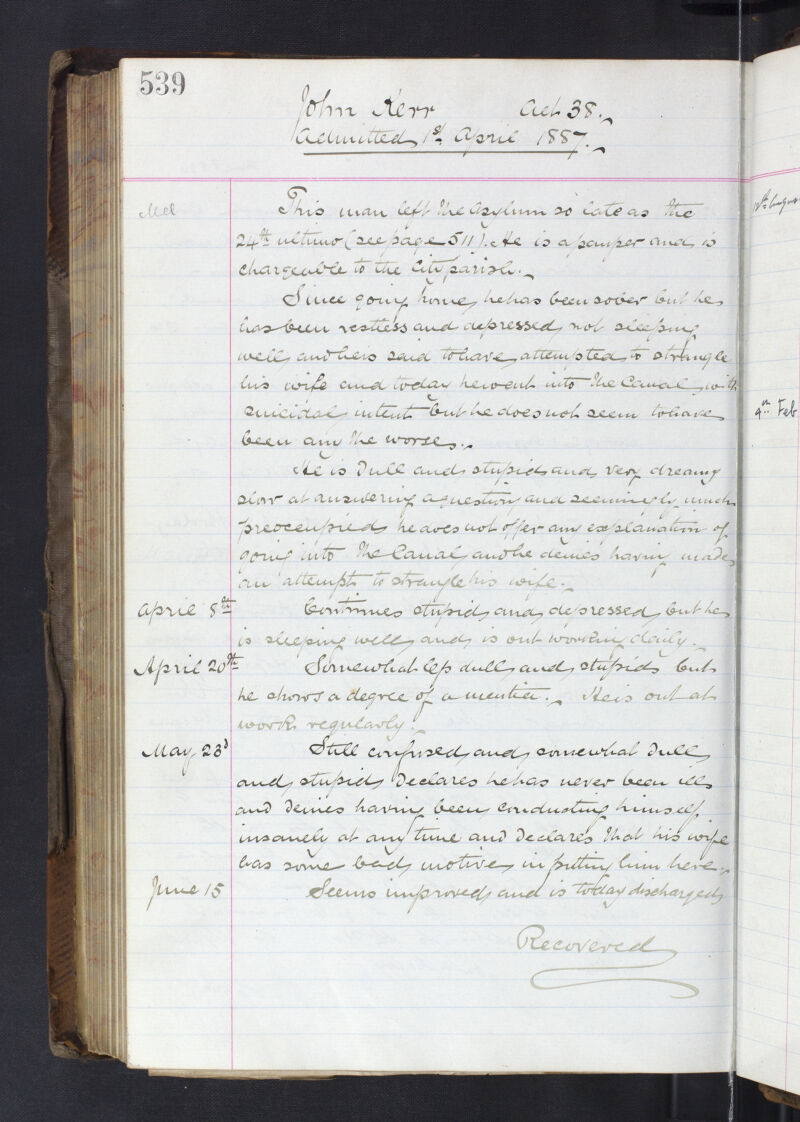 539
John Kerr Aet 38.
Admitted 1st April 1887.
Mel
This man left the asylum so late as the
24th ultimo (see page 511). He is a pauper and is
chargeable to the City parish.
Since going home, he has been sober but he
has been restless and depressed, not sleeping
well, and he is said to have attempted to strangle
his wife and today he went into the Canal, with
suicidal intent but he does not seem to have
been any the worse.
He is dull and stupid and very dreamy
slow at answering a question and seemingly much
preoccupied, he does not offer any explanation of
going into the Canal, and he denies having made
an attempt to strangle his wife.
April 8th Continues stupid and depressed, but he
is sleeping well and is out working daily.
April 20th Somewhat less dull and stupid but
he shows a degree of amentia. He is out at
work regularly.
May 23d Still confused and somewhat dull
and stupid, declares he has never been ill
and denies having been conducting himself
insanely at any time and declares that his wife
has some bad motive in putting him here.
June 15 Seems improved and is today discharged
Recovered
9th Feb